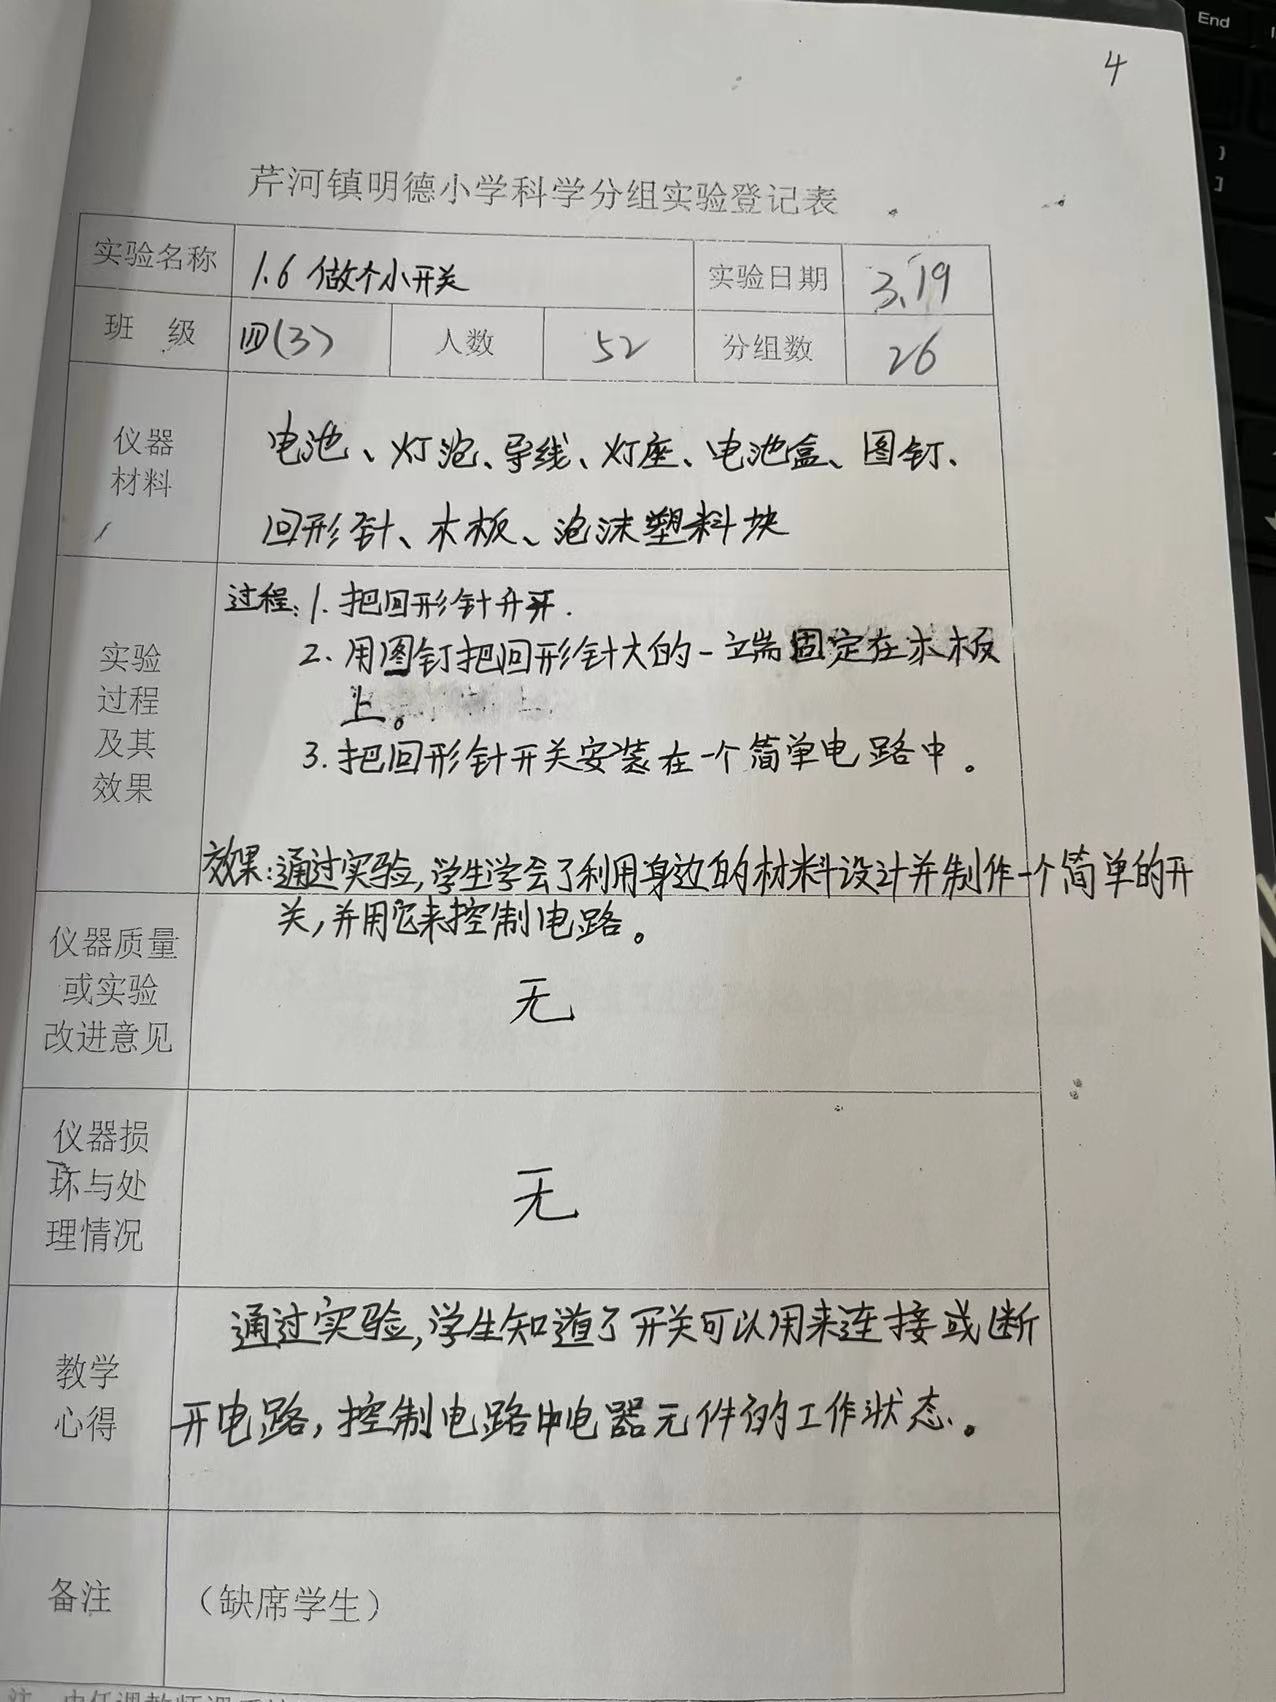 End
4
芹河镇明德小学科学分组实验登记表
实验名称 1.6 做个小开关 实验日期 3.19
班 级 四(3) 人数 52 分组数 26
仪器
材料
电池、灯泡、导线、灯座、电池盒、图钉、
回形针、木板、泡沫塑料块
实验
过程
及其
效果
过程:1.把回形针升开.
2.用图钉把回形针大的一端固定在木板
上。
3.把回形针开关安装在一个简单电路中。
效果:通过实验,学生学会了利用身边的材料设计并制作一个简单的开
关,并用它来控制电路。
仪器质量
或实验
改进意见
无
仪器损
坏与处
理情况
无
教学
心得
通过实验,学生知道了开关可以用来连接或断
开电路,控制电路中电器元件的工作状态。
备注
（缺席学生）